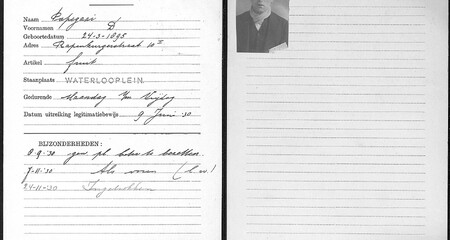 Naam
Voornamen D
Geboortedatum 24-3-1895
Adres Rapenburgerstraat 10 II
Artikel fruit
Staanplaats WATERLOOPLEIN.
Gedurende Maandag t/m Vrijdag
Datum uitreiking legitimatiebewijs 9 Juni '30
BIJZONDERHEDEN:
8-9-'30 gew. pl. beter te bezetten
7-11-'30 Als voren (l.w.)
24-11-'30 Ingetrokken